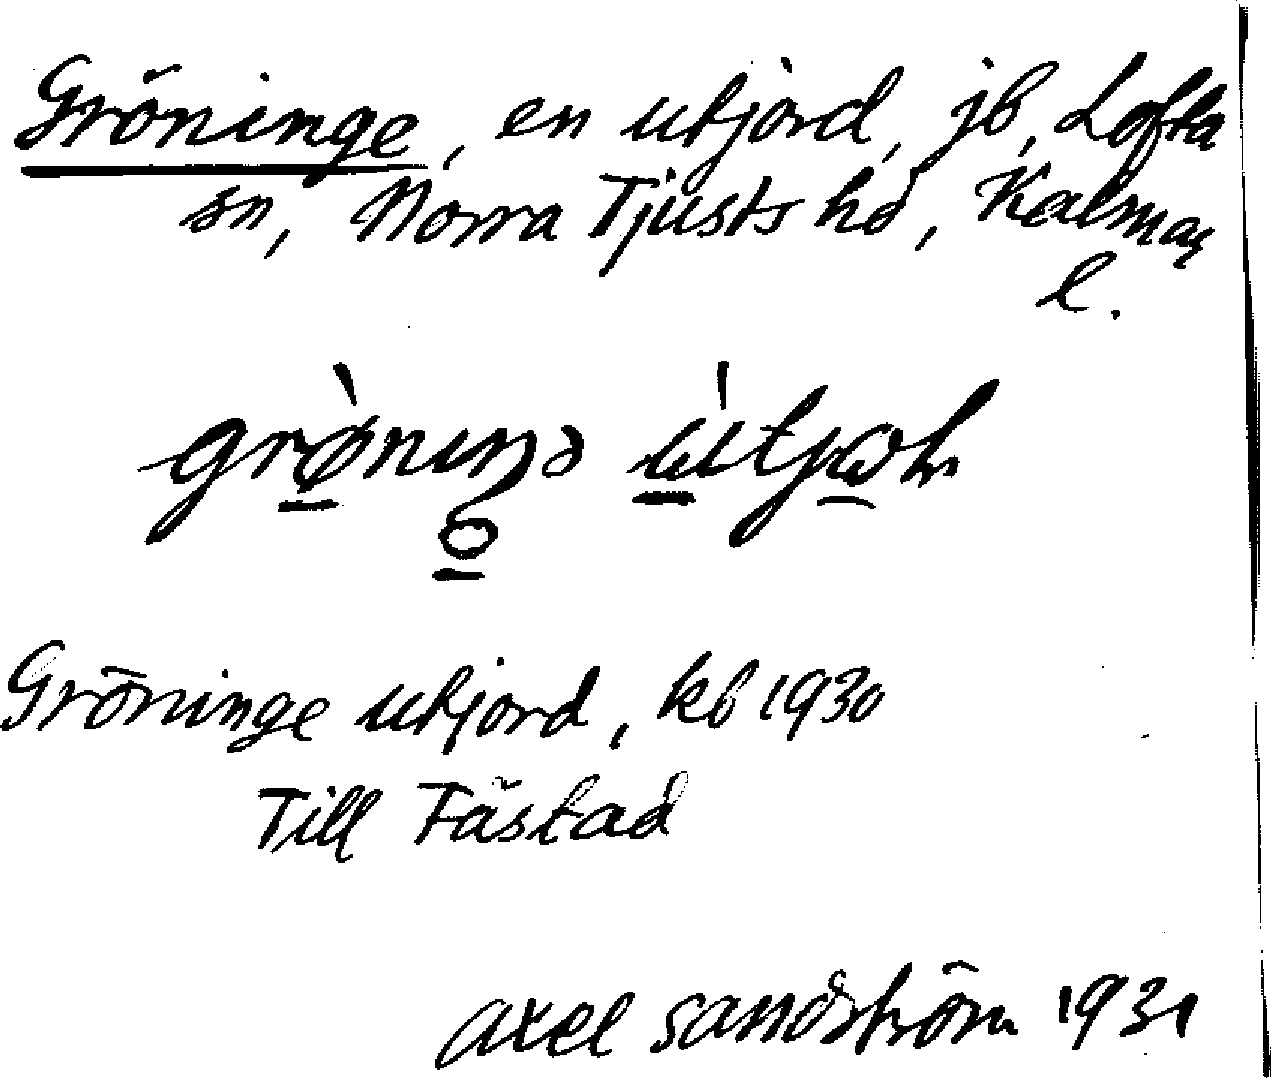 Gröninge, en utjord, jb, Lofta
sn, Norra Tjusts hd, Kalmar
l.
Gröninge utjord, kb 1930
Till Fästad
Axel Sandström 1931